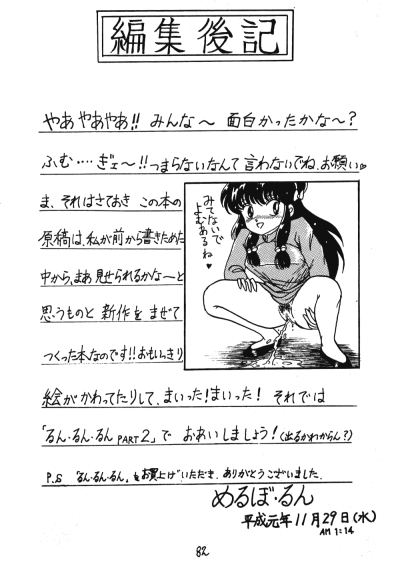 編集後記
やあ やあやあ!! みんな〜 面白かったかな〜?
ふむ‥‥ぎェ〜!!つまらないなんて言わないでね、お願い。
ま、それはさておき この本の
原稿は、私が前から書きためた
中から、まあ見せられるかな〜と
思うものと 新作を まぜて
つくった本なのです!!おもいっきり
みてないで
よむあるね♥
絵がかわってたりして、まいった!まいった! それでは
「るん・るん・るん PART2」で おあいしましょう!(出るかわからん?)
P.S 「るん・るん・るん」をお買上げいただき、ありがとうございました。
めるぼ・るん
平成元年11月29日(水)
AM 1:14
82